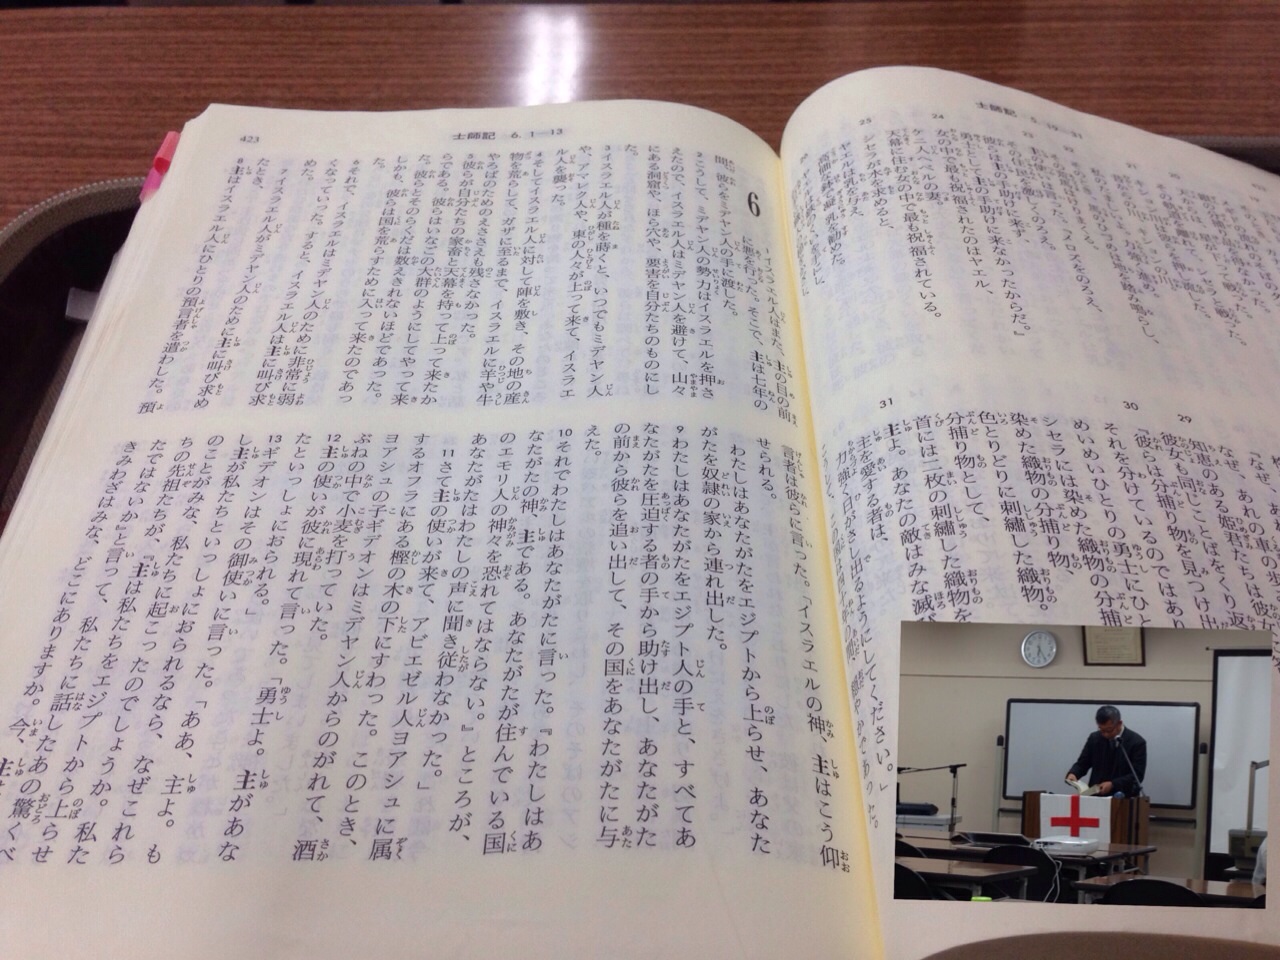 士師記 5. 19—31
彼らは主の手助けに来ず、
勇士として主の手助けに来なかったからだ。』
24
女の中で最も祝福されたのはヤエル、
ケニ人ヘベルの妻。
天幕に住む女の中で最も祝福されている。
25
シセラが水を求めると、
ヤエルは乳を与え、
高価な鉢で凝乳を勧めた。
29
知恵のある姫君たちは彼女
彼女も同じことばをくり返
30
『彼らは分捕り物を見つけ出
それを分けているのではあり
めいめいひとりの勇士にひと
シセラには染めた織物の分捕
染めた織物の分捕り物、
色とりどりに刺繡した織物。
分捕り物として、
首には二枚の刺繡した織物を
31
主よ。あなたの敵はみな滅び
主を愛する者は、
力強く日がさし出るようにしてください。」
423
士師記 6. 1—13
6
1 イスラエル人はまた、主の目の前
に悪を行った。そこで、主は七年の
間、彼らをミデヤン人の手に渡した。
2 こうして、ミデヤン人の勢力はイスラエルを押さ
えたので、イスラエル人はミデヤン人を避けて、山々
にある洞窟や、ほら穴や、要害を自分たちのものにし
た。
3 イスラエル人が種を蒔くと、いつでもミデヤン人
や、アマレク人や、東の人々が上って来て、イスラエ
ル人を襲った。
4 そしてイスラエル人に対して陣を敷き、その地の産
物を荒らして、ガザに至るまで、イスラエルに羊や牛
やろばのためのえささえも残さなかった。
5 彼らが自分たちの家畜と天幕を持って上って来たか
らである。彼らはいなごの大群のようにしてやって来
た。彼らとそのらくだは数えきれないほどであった。
しかも、彼らは国を荒らすために入って来たのであっ
た。
6 それで、イスラエルはミデヤン人のために非常に弱
くなっていった。すると、イスラエル人は主に叫び求
めた。
7 イスラエル人がミデヤン人のために主に叫び求め
たとき、
8 主はイスラエル人にひとりの預言者を遣わした。預
言者は彼らに言った。「イスラエルの神、主はこう仰
せられる。
わたしはあなたがたをエジプトから上らせ、あなた
がたを奴隷の家から連れ出した。
9 わたしはあなたがたをエジプト人の手と、すべてあ
なたがたを圧迫する者の手から助け出し、あなたがた
の前から彼らを追い出して、その国をあなたがたに与
えた。
10 それでわたしはあなたがたに言った。『わたしはあ
なたがたの神、主である。あなたがたが住んでいる国
のエモリ人の神々を恐れてはならない。』ところが、
あなたがたはわたしの声に聞き従わなかった。」
11 さて主の使いが来て、アビエゼル人ヨアシュに属
するオフラにある樫の木の下にすわった。このとき、
ヨアシュの子ギデオンはミデヤン人からのがれて、酒
ぶねの中で小麦を打っていた。
12 主の使いが彼に現れて言った。「勇士よ。主があな
たといっしょにおられる。」
13 ギデオンはその御使いに言った。「ああ、主よ。も
し主が私たちといっしょにおられるなら、なぜこれら
のことがみな、私たちに起こったのでしょうか。私た
ちの先祖たちが、『主は私たちをエジプトから上らせ
たではないか』と言って、私たちに話したあの驚くべ
きみわざはみな、どこにありますか。今、主